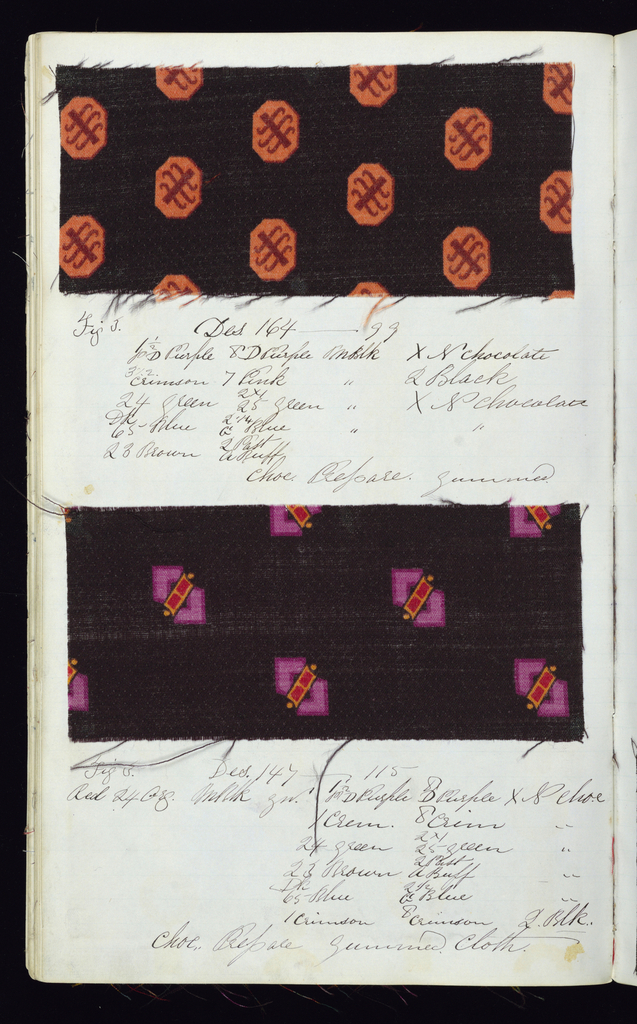 Fig 3. Des 164 — 99
D Purple 8 D Purple Blk X N chocolate
3 1/2 Crimson 7 Pink " 2 Black
24 green 24 25 green " X N Chocolate
Dk 65 Blue 2 1/2 C Blue " "
23 Brown 2 Past a Buff
Choc Prepare. gummed.
Fig 3. Des. 147 — 115
Red 24 D Purple 8 Purple X N choc
1 Crem. 8 Crim "
24 green 24 25 green "
23 Brown 2 Past a Buff "
Dk 65 Blue 2 1/2 C Blue "
1 Crimson 8 Crimson 2 Blk.
Choc. Prepare gummed. Cloth.